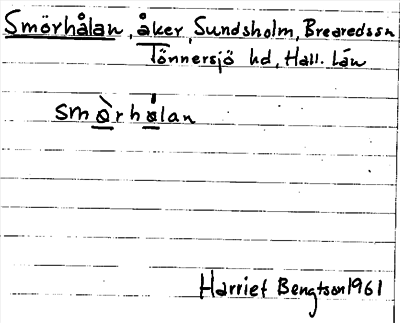 Smörhålan, åker, Sundsholm, Brearedssn
Tönnersjö hd, Hall. Län
smòrhålan
Harriet Bengtson 1961